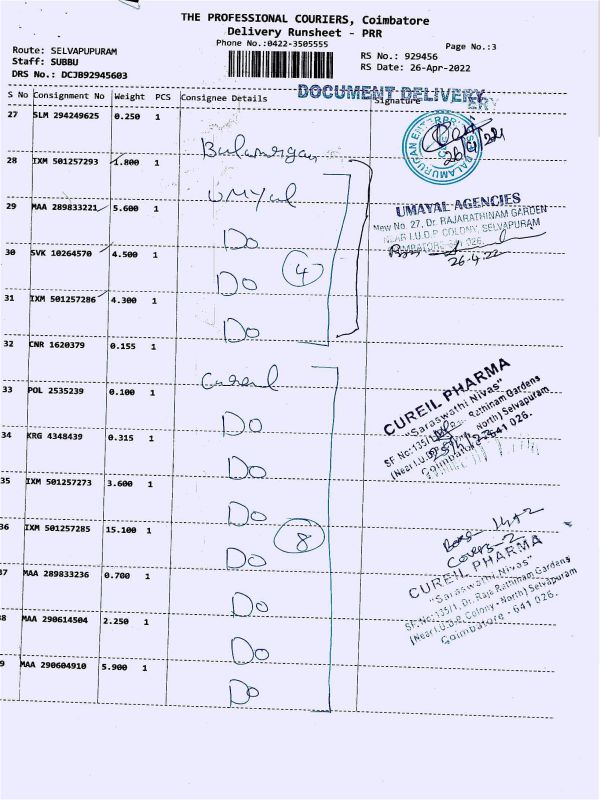 THE PROFESSIONAL COURIERS, Coimbatore
Delivery Runsheet - PRR
Phone No.:0422-3505555
Page No.:3
Route: SELVAPUPURAM
Staff: SUBBU
DRS No.: DCJB92945603
RS No.: 929456
RS Date: 26-Apr-2022
DOCUMENT DELIVERY
S No Consignment No Weight PCS Consignee Details Signature
27 SLM 294249625 0.250 1
Balamurgan
28 IXM 501257293 1.800 1
UMYal
29 MAA 289833221 5.600 1
Do
30 SVK 10264570 4.500 1
Do
4
31 IXM 501257286 4.300 1
Do
32 CNR 1620379 0.155 1
Cureal
33 POL 2535239 0.100 1
Do
34 KRG 4348439 0.315 1
Do
35 IXM 501257273 3.600 1
Do
36 IXM 501257285 15.100 1
Do
8
37 MAA 289833236 0.700 1
Do
38 MAA 290614504 2.250 1
Do
39 MAA 290604910 5.900 1
Do
UMAYAL AGENCIES
New No. 27, Dr. RAJARATHINAM GARDEN
NEAR I.U.D.P COLONY, SELVAPURAM
26.4.22
CUREIL PHARMA
"Saraswathi Nivas"
Coimbatore - 641 026.
Covers-2
CUREIL PHARMA
"Saraswathi Nivas"
SF.No:135/1, Dr. Raja Rathinam Gardens
(Near I.U.D.P. Colony - North) Selvapuram
Coimbatore - 641 026.